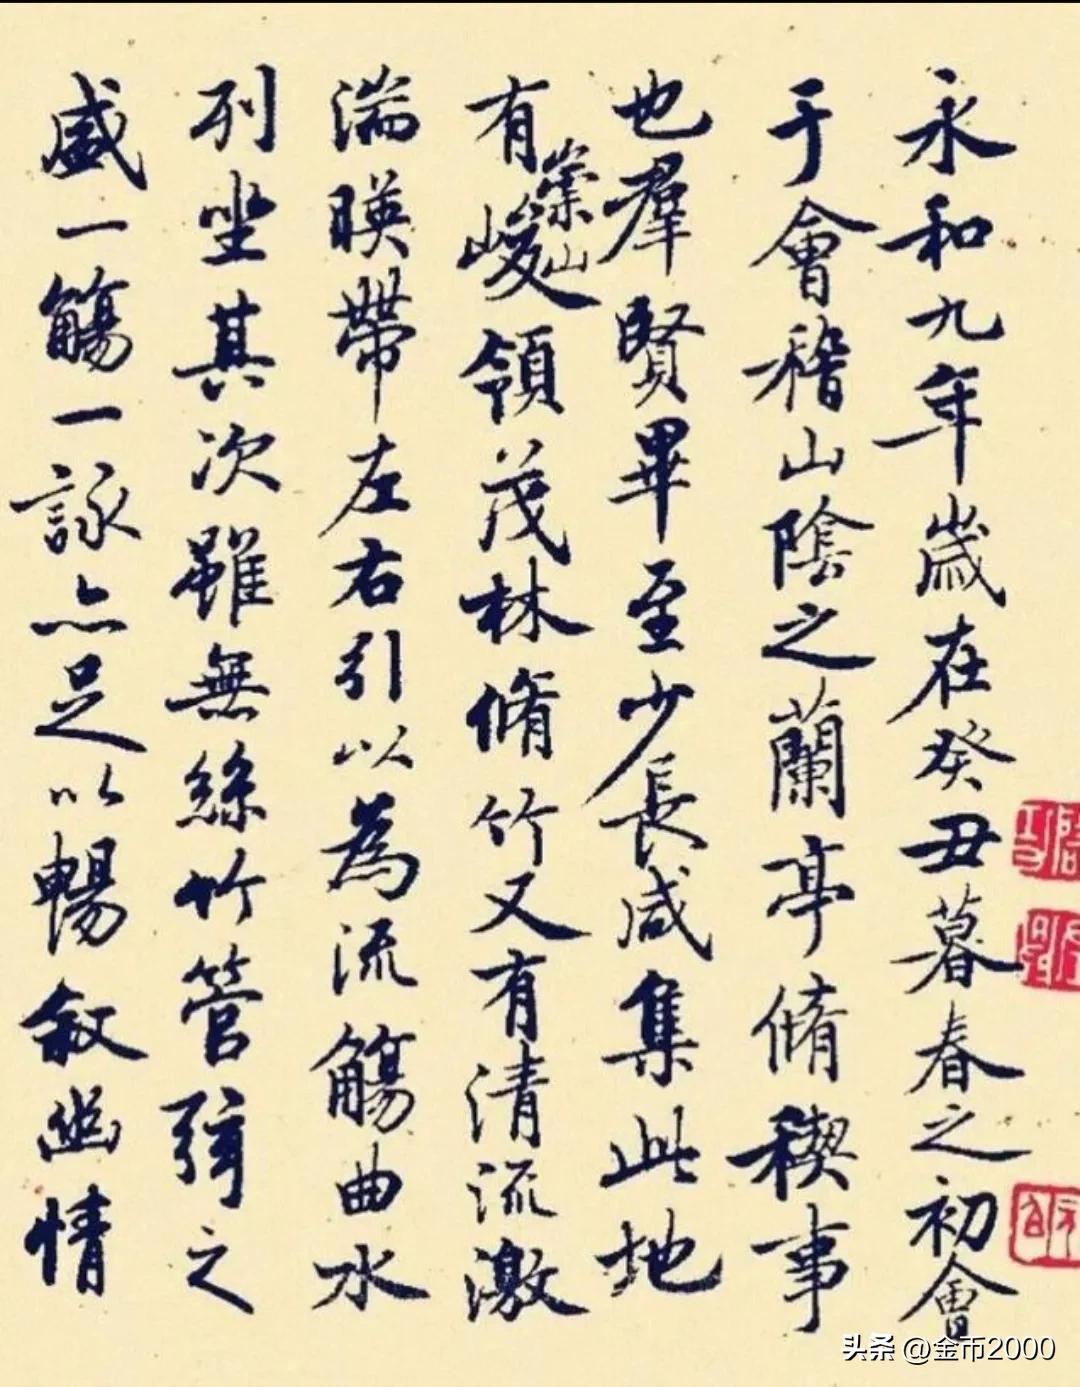 永和九年歲在癸丑暮春之初會
于會稽山陰之蘭亭脩稧事
也羣賢畢至少長咸集此地
有崇山峻領茂林脩竹又有清流激
湍暎帶左右引以為流觴曲水
列坐其次雖無絲竹管弦之
盛一觴一詠亦足以暢敘幽情
头条 @金币2000